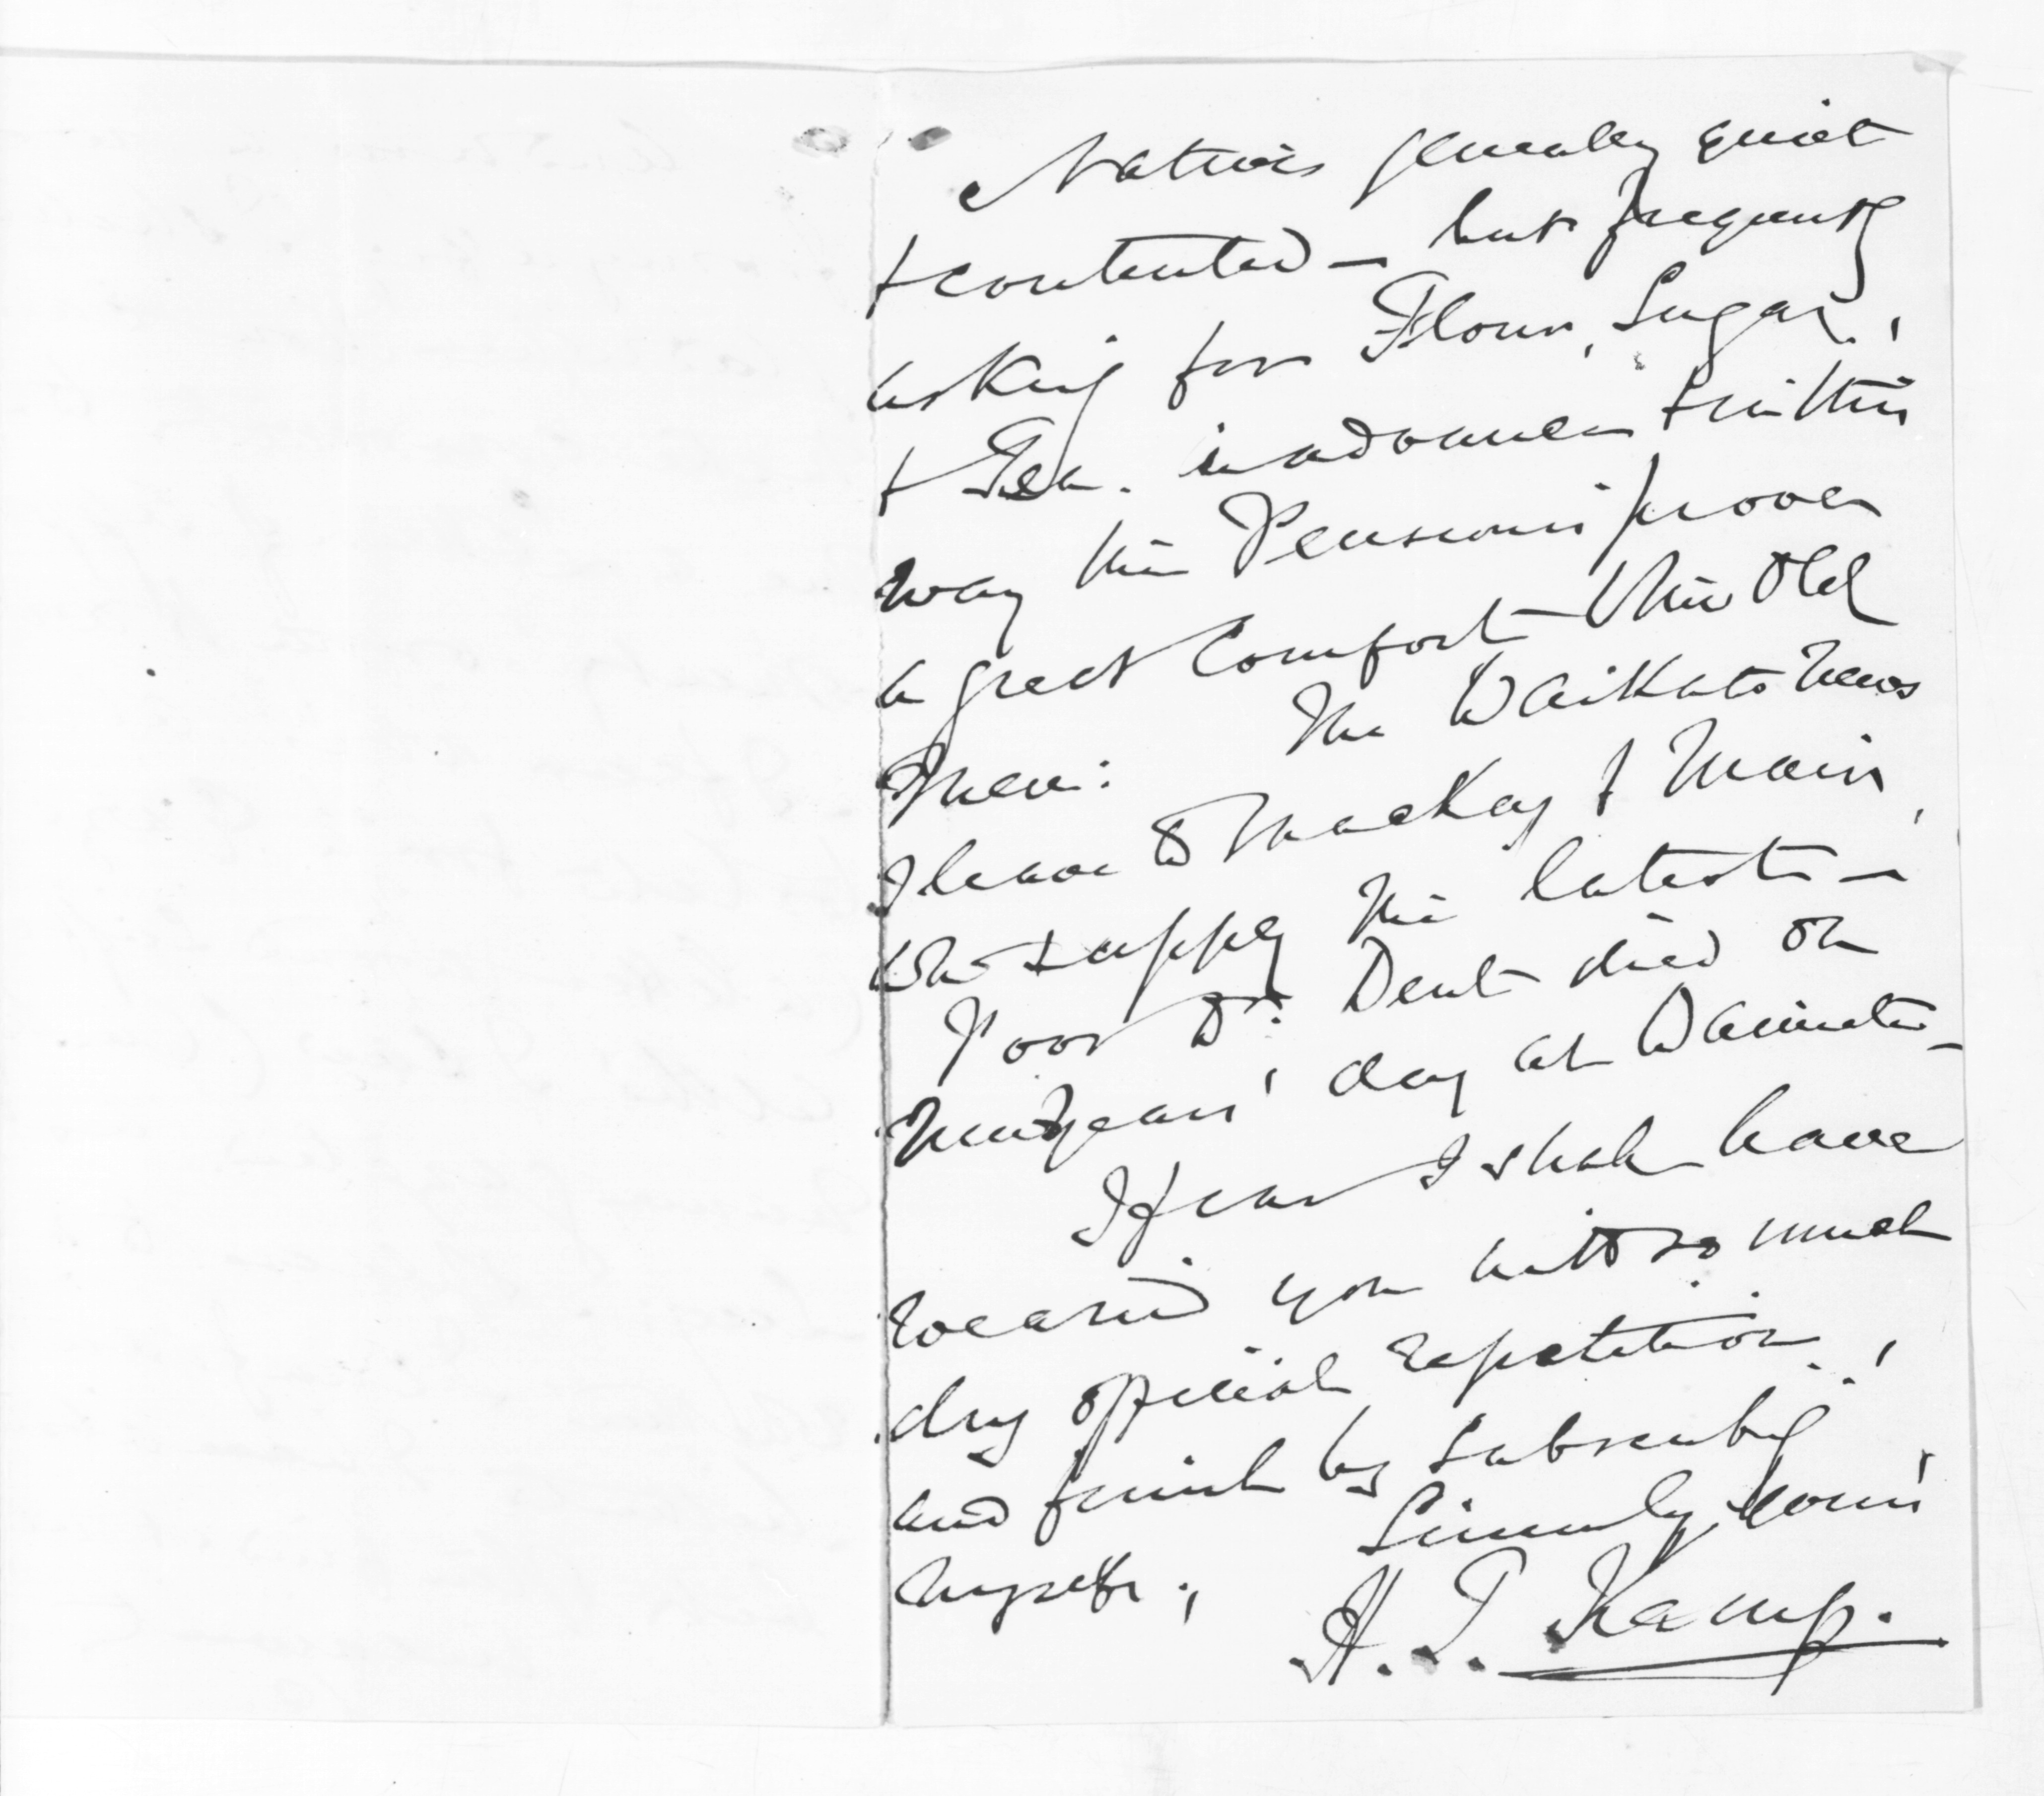 Natives generally quiet
& contented – but frequently
asking for Flour, Sugar,
& Tea. in advance & in this
way the Pensions prove
a great comfort – this Old
Men: The Waikato News
I leave to Mackay & Mair,
who supply the latest –
Poor Dr. Dent died on
New Years' day at Waimate –
I fear I shall have
wearied you with so much
dry official repetition,
and finish by subscribg
Sincerely Yours
myself,
H. T. Kemp.